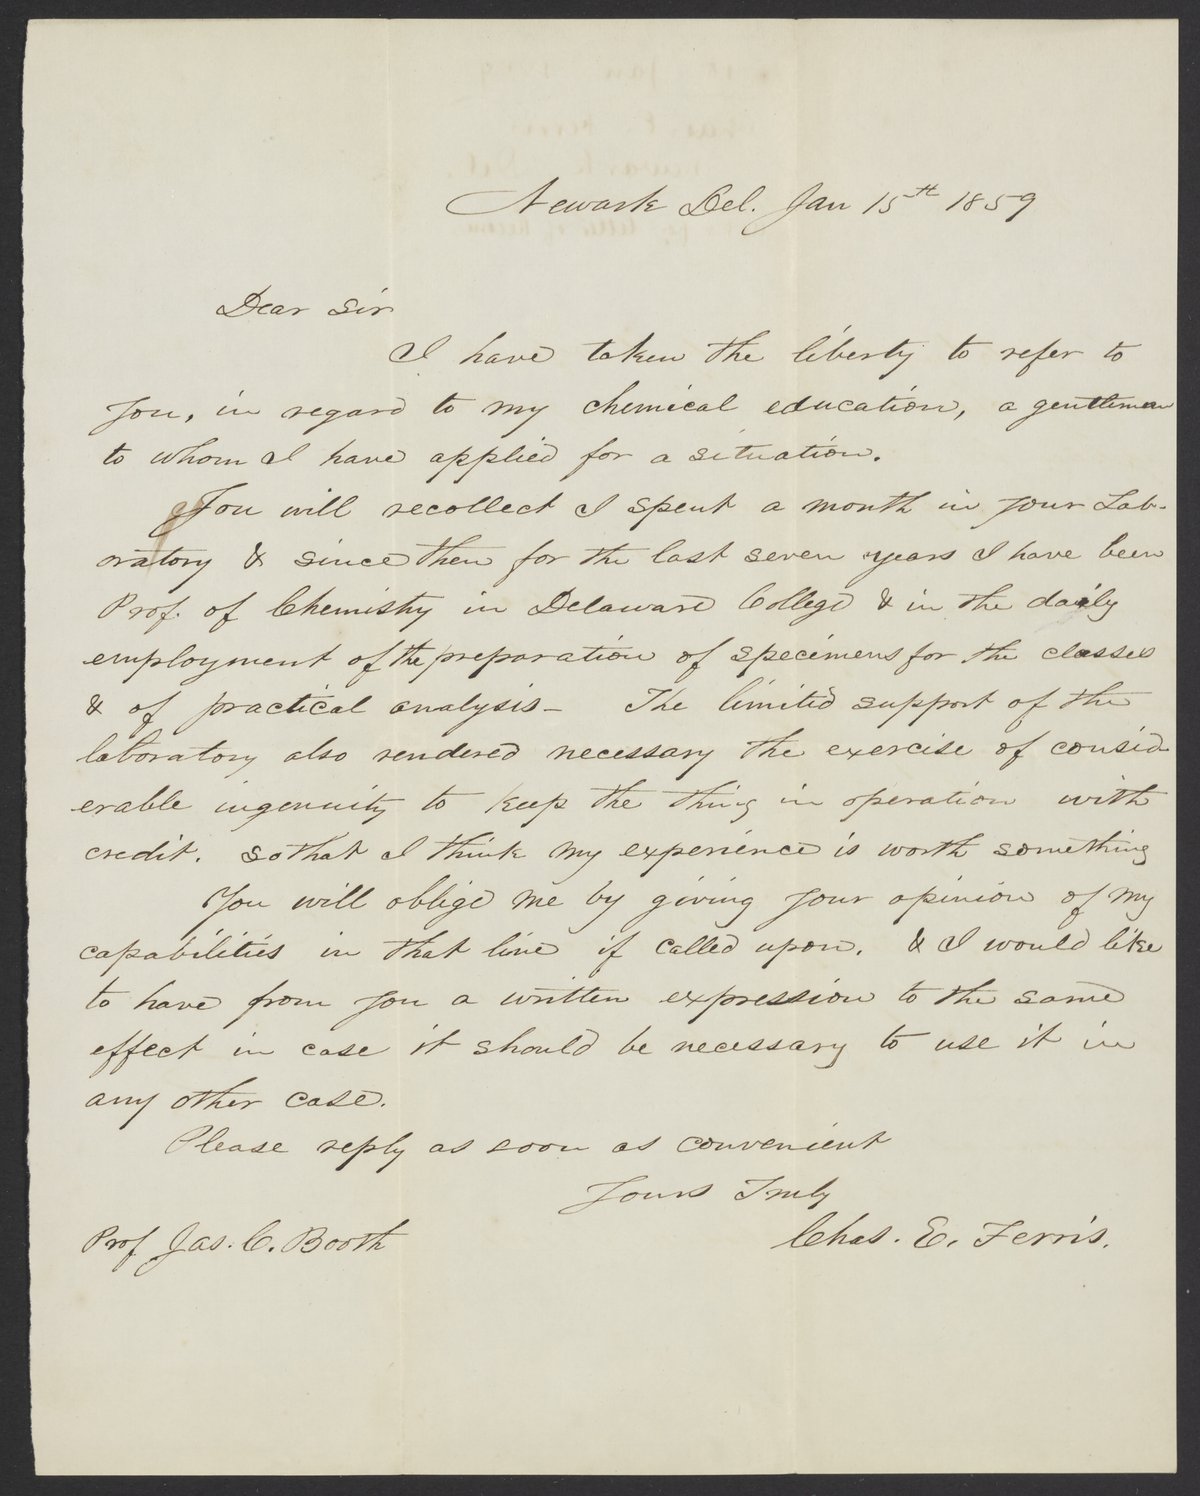 Newark Del. Jan 15th 1859
Dear Sir
I have taken the liberty to refer to
you, in regard to my chemical education, a gentleman
to whom I have applied for a situation.
You will recollect I spent a month in your Lab-
oratory & since then for the last seven years I have been
Prof. of Chemistry in Delaware College & in the daily
employment of the preparation of specimens for the classes
& of practical analysis - The limited support of the
laboratory also rendered necessary the exercise of consid
erable ingenuity to keep the thing in operation with
credit. so that I think my experience is worth something
You will oblige me by giving your opinion of my
capabilities in that line if called upon. & I would like
to have from you a written expression to the same
effect in case it should be necessary to use it in
any other case.
Please reply as soon as convenient
Yours Truly
Chas. E. Ferris.
Prof Jas. C. Booth